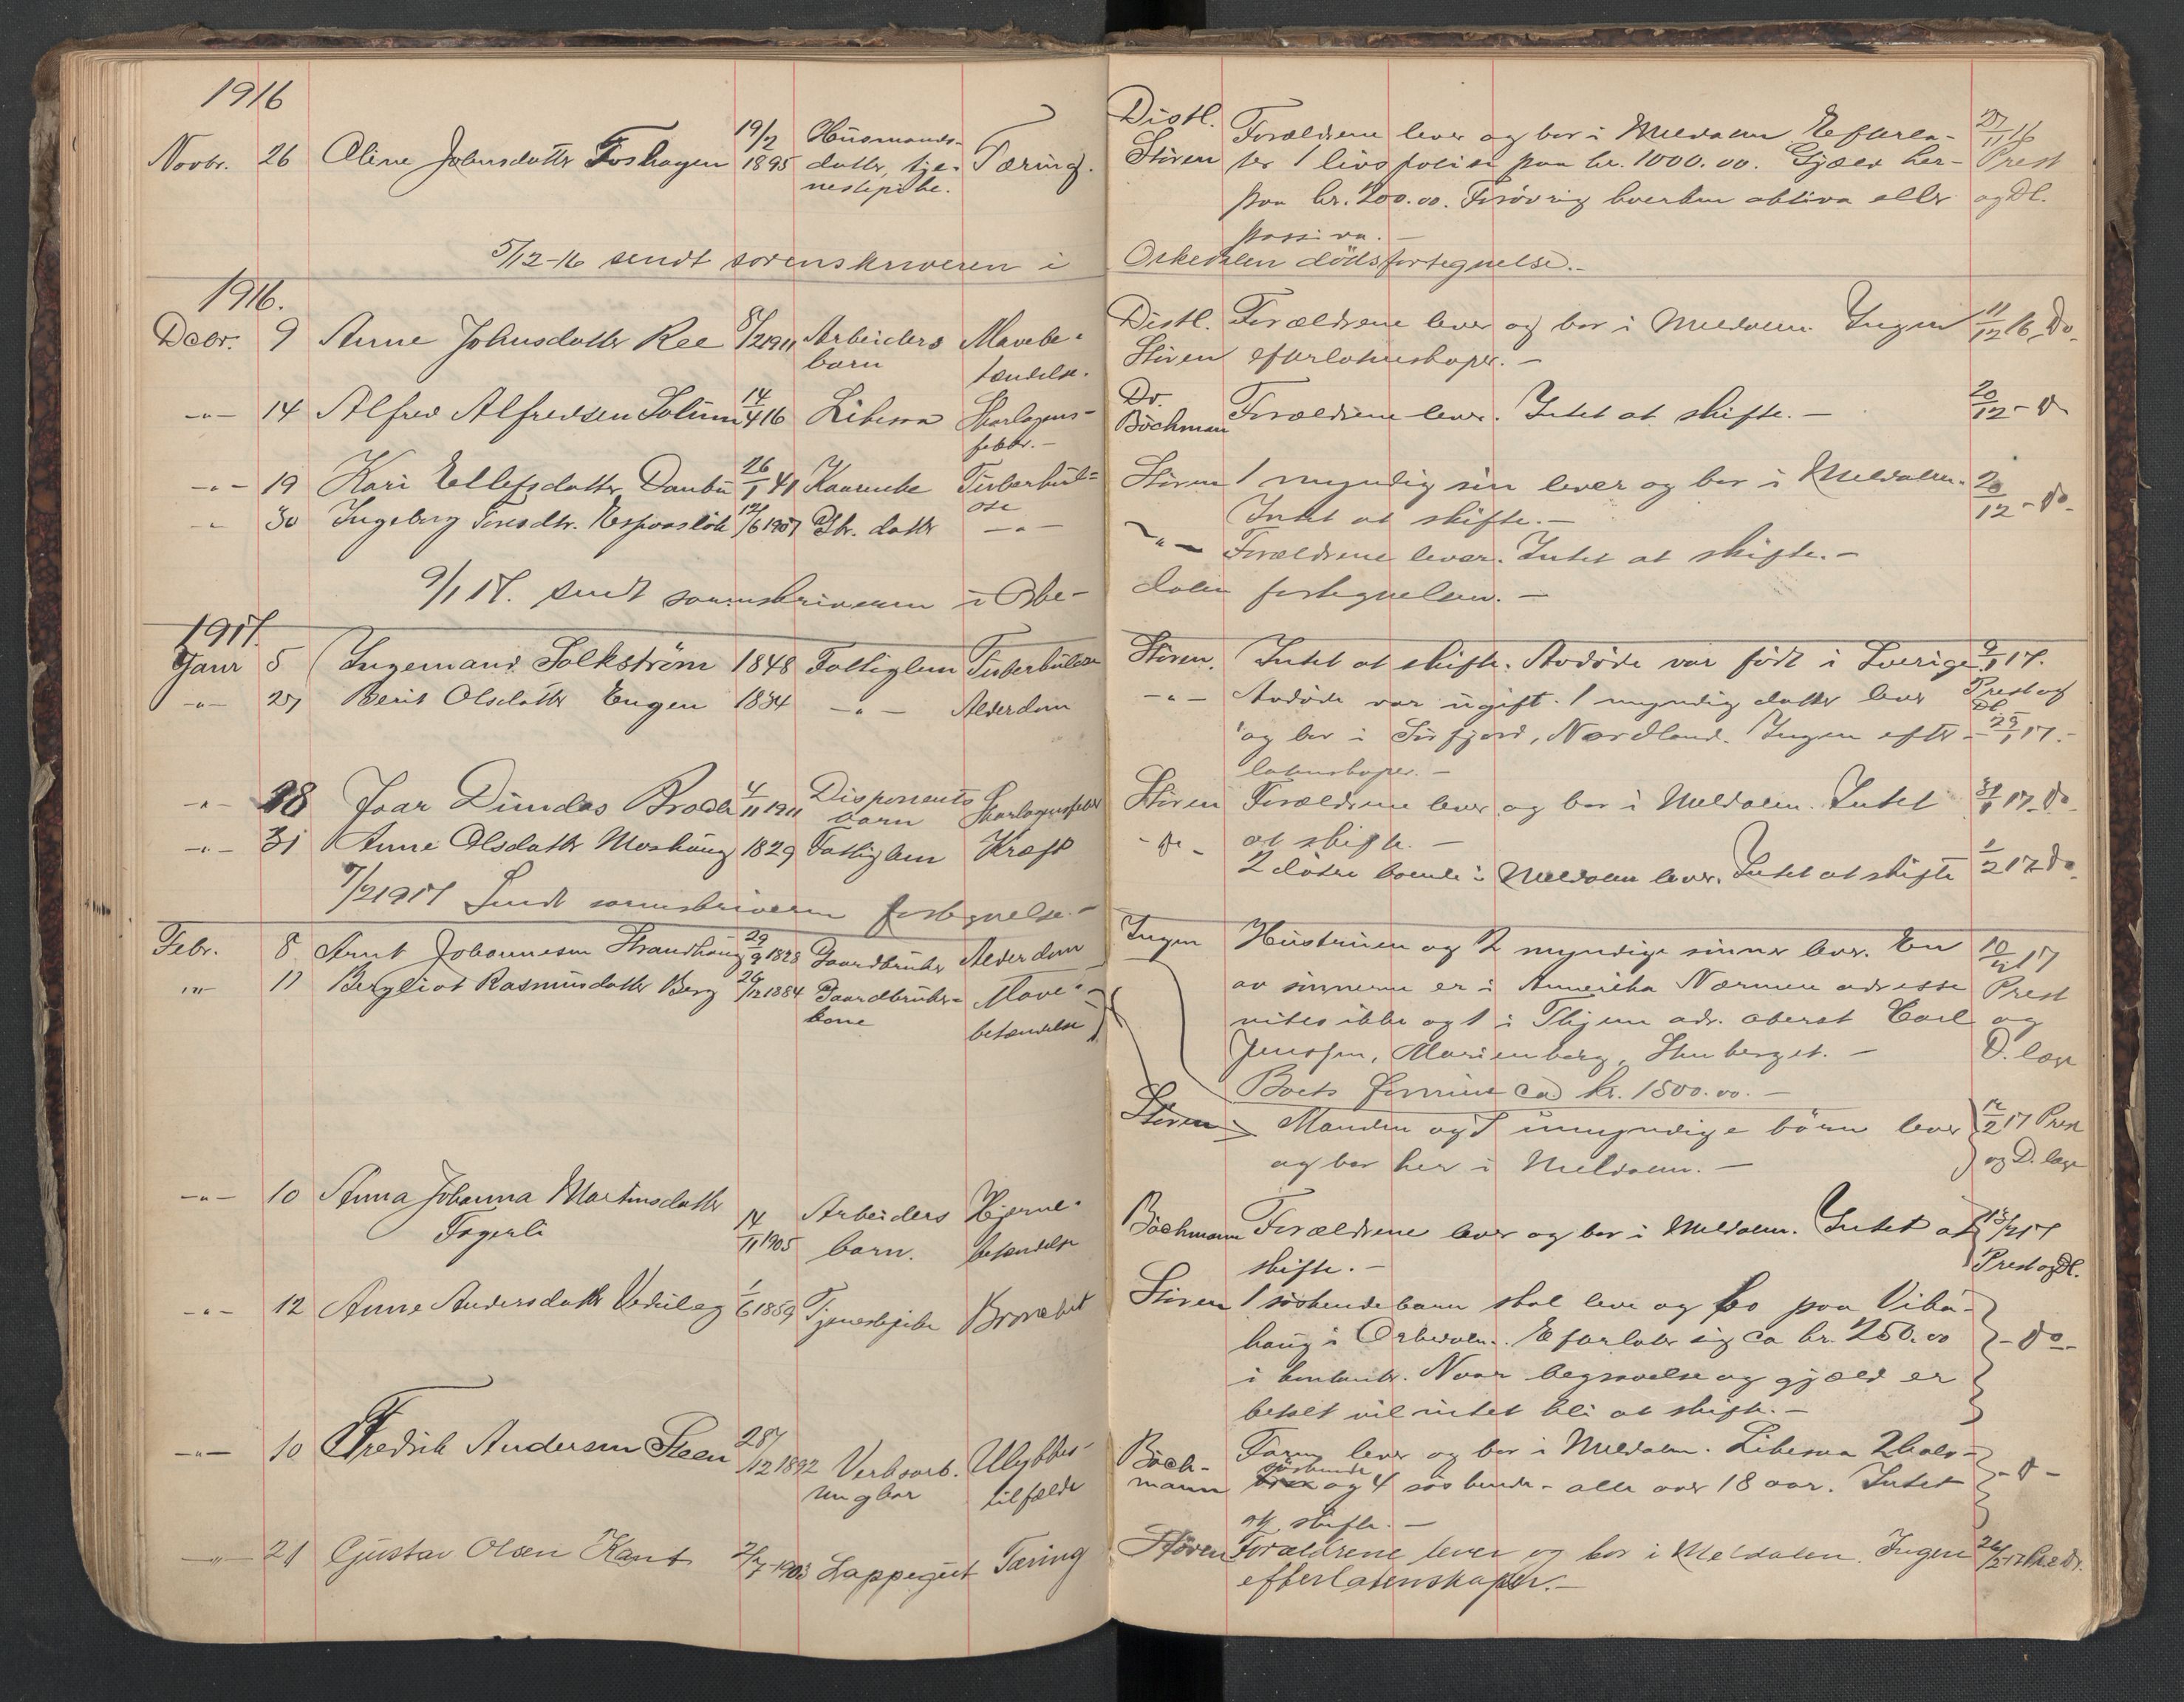 1916
Novbr. 26 Oline Johnsdatter Foshagen 19/2 1895 Husmands- datter, tje- nestepike. Tæring.
5/12-16 sendt sorenskriveren i
1916.
Decbr. 9 Anne Johnsdatter Ree 8/2 1911 Arbeiders barn Mavebe- tændelse.
-"- 14 Alfred Alfredsen Solum 14/4 16 Libesra Skarlagens- feber.-
-"- 19 Kari Ellefsdatter Danbu 26/1 41 Kaarenke Tuberkul- ose
-"- 30 Ingeborg Toresdtr. 12/6 1907 Gbr. datter -"-
9/1 17. sendt sorenskriveren i Orke-
1917.
Janr 5 Ingemann Solkström 1848 Fattiglem Tuberkulose
-"- 27 Berit Olsdatter Engen 1834 -"- Alderdom
-"- 28 Joar Dundas Brodh 4/11 1911 Disponents barn Skarlagensfeber
-"- 31 Anne Olsdatter Moshaug 1829 Fattiglem Kræft
7/2 1917 Sendt sorenskriveren fortegnelse.-
Febr. 8 Arnt Johannesen Strandhaug 29/9 1828 Gaardbruker Alderdom
-"- 11 Bergliot Rasmusdatter Berg 26/12 1884 Gaardbruker- kone Mave- betændelse
-"- 10 Anna Johanna Martinsdatter
Fagerli 14/11 1905 Arbeiders barn. Hjerne- betændelse
-"- 12 Anne Andersdatter 1/6 1859 Tjenestepike Bronchit
-"- 10 Fredrik Andersen Steen 28/12 1892 Verksarb. ungkar Ulykkes- tilfælde
-"- 21 Gustav Olsen Kant 2/7-1903 Lappegut Tæring
Distl. Forældrene lever og bor i Meldalen Efterla- 27/11 16
Stören ter 1 livspolise paa kr. 1000.00. Gjæld her- Prest
paa kr. 200.00. Forøvrig hverken aktiva eller og Dl.
passiva.-
Orkedalen dödsfortegnelse.-
Distl. Forældrene lever og bor i Meldalen. Ingen 11/12 16 Do.
Stören efterlatenskaper.-
Dr. Böchman Forældrene lever. Intet at skifte.- 20/12 - do
Stören 1 myndig sön lever og bor i Meldalen. 20/12 - do-
Intet at skifte.-
-"- Forældrene lever. Intet at skifte.-
dalen fortegnelsen.-
Stören. Intet at skifte. Avdöde var födt i Sverige 9/1 17.
-"- Avdöde var ugift. 1 myndig datter lever Prest og Dl.
og bor i Sörfjord, Nordland. Ingen efter- 29/1 17.-
latenskaper.-
Stören Forældrene lever og bor i Meldalen. Intet 31/1 17 do
- do - at skifte.-
2 dötre boende i Meldalen lever. Intet at skifte 1/2 17 do.
Ingen Hustruen og 2 myndige sönner lever. En 10/2 17
av sönnerne er i Amerika Nærmere adresse Prest
vites ikke og 1 i Thjem adr. oberst Carl og
Jenssen, Marienborg, Stenberget.- D. læge
Boets formue ca kr. 1500.00.-
Stören Manden og 7 umyndige börn lever 12/2 17 Prest
og bor her i Meldalen.- og D. læge
Böchmann Forældrene lever og bor i Meldalen. Intet at 13/2 17
skifte.- Prest og Dl.
Stören 1 söskendebarn skal leve og bo paa Vibu-
haug i Orkedalen. Efterlater sig ca kr. 250.00 - do -
i kontanter. Naar begravelse og gjæld er
betalt vil intet bli at skifte.-
Böch- mann Faren lever og bor i Meldalen. 2 halv-
söskende og 4 söskende - alle over 18 aar. Intet - d -
at skifte.-
Stören Forældrene lever og bor i Meldalen. Ingen 26/2-17
efterlatenskaper.-